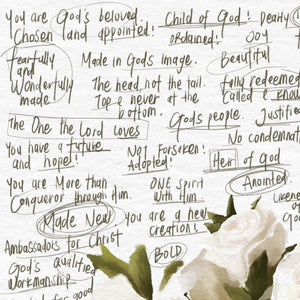 You are God's beloved
Chosen and appointed!
Child of God! Dearly
Ordained! Joy
fearfully
and
Wonderfully
made
Made in God's image.
Beautiful
The head, not the tail.
Top & never at the
bottom.
fully redeemed
Called & know
The One the Lord loves
God's people
Justifie
No condemnat
You have a future
and hope!
Not Forsaken!
Adopted!
Heir of God
You are More than
Conqueror through Him.
ONE spirit
With Him
Anointed
Made New
You are a new
creation!
Ambassadors for Christ
BOLD
God's qualified
Workmanship
for good